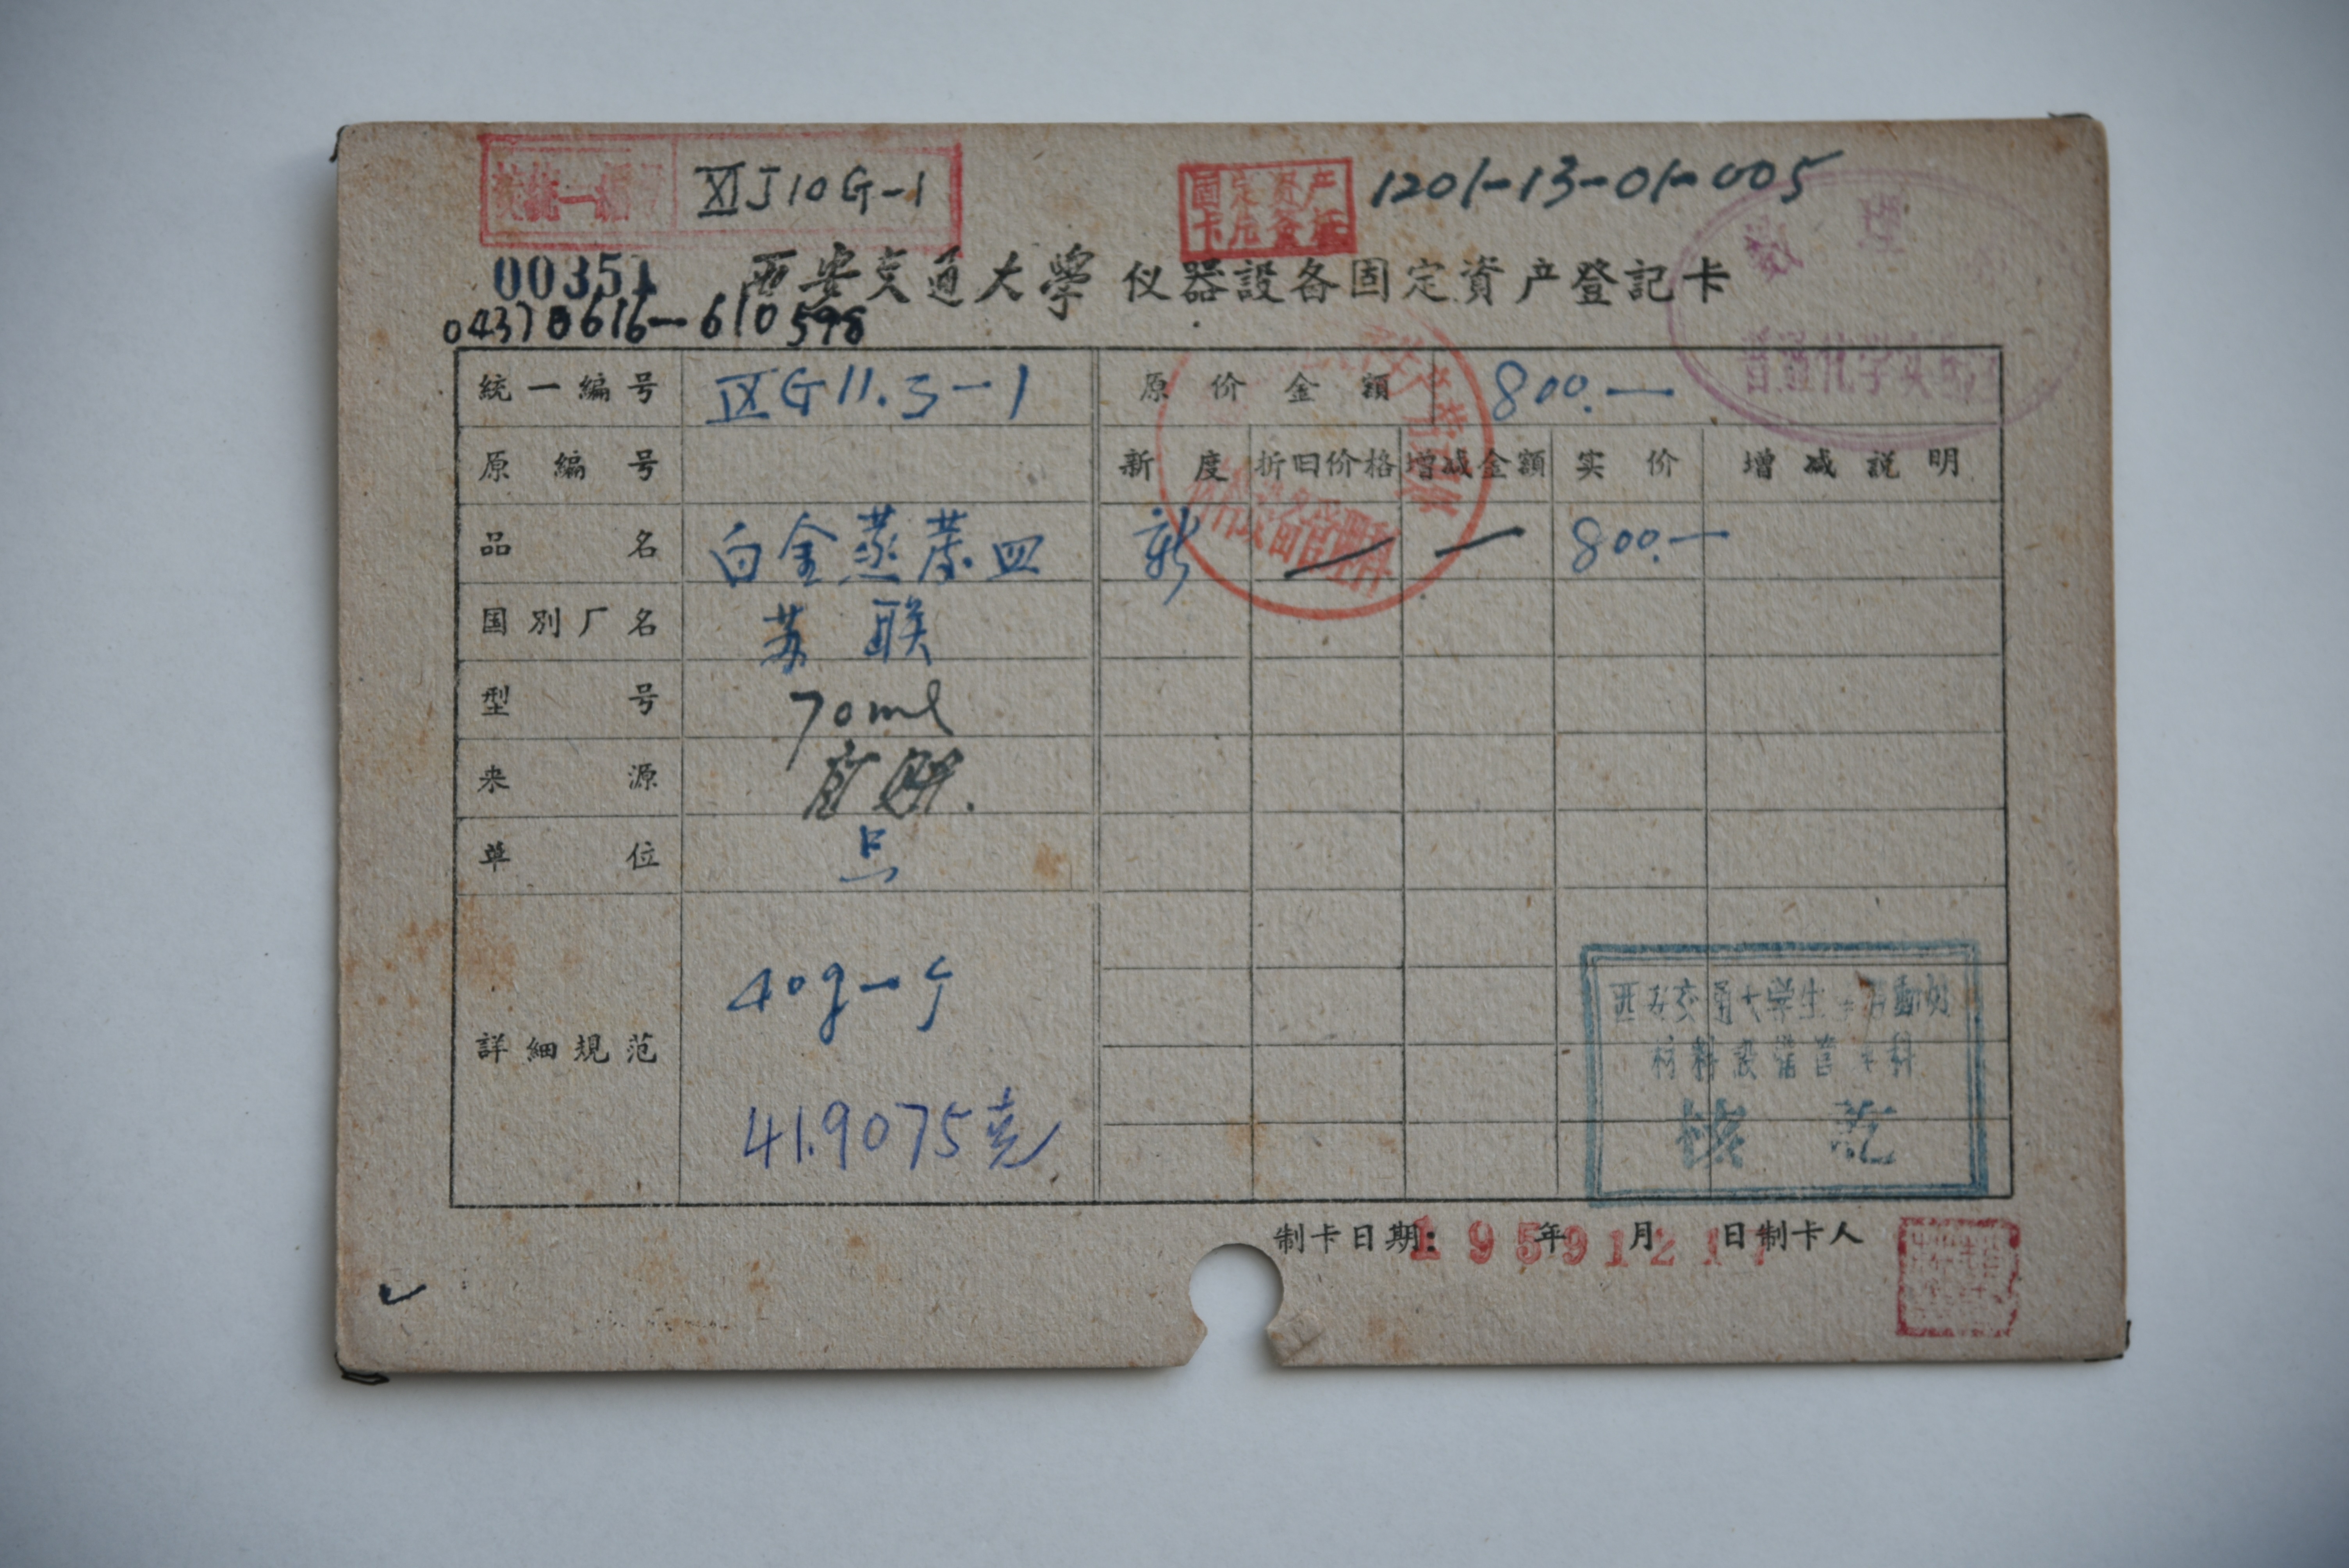 统一编号 XIJ10G-1
固定资产 1201-13-01-005
数理
00351 西安交通大學 仪器設备固定資产登記卡
普通化学实
統一編号 IXG11.3-1 原价金額 800.—
原編号 新度 折旧价格 增减金額 实价 增减説明
品名 白金蒸蒸皿 新 — — 800.—
国别厂名 苏联
型号 70ml
来源
单位 只
詳細規范 40g-
41.9075克
西安交通大学生
材料設备管 科
制卡日期: 1959年12月17日 制卡人